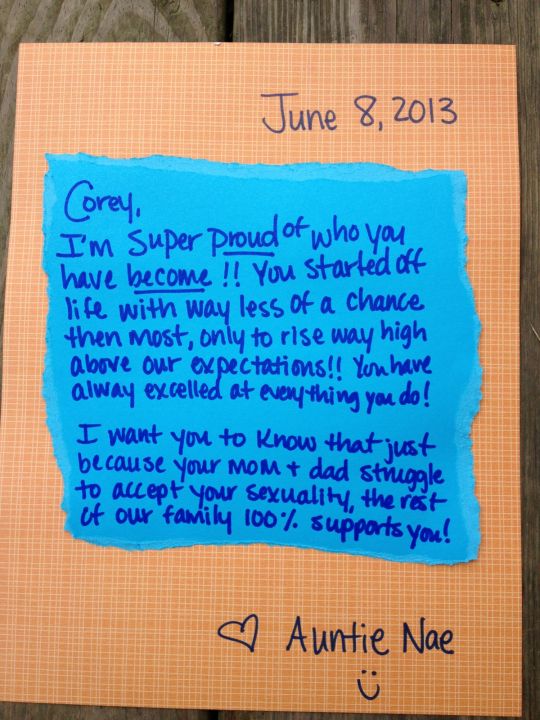 June 8, 2013
Corey,
I'm super proud of who you
have become !! You started off
life with way less of a chance
then most, only to rise way high
above our expectations!! You have
alway excelled at everything you do!
I want you to know that just
because your mom + dad struggle
to accept your sexuality, the rest
of our family 100% supports you!
♡ Auntie Nae
:)